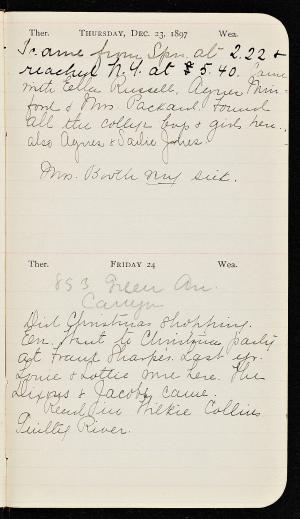 Ther. THURSDAY, DEC. 23, 1897 Wea.
I came from Spn. at 2.22 &
reached N.Y. at 5.40. Came
with Ella Russell, Agnes
& Mrs. Packard. Found
all the college boys & girls here,
also Agnes & Sadie Jones.
Mrs. Booth very sick.
Ther. FRIDAY 24 Wea.
853 Green Av.
Did Christmas shopping.
Eve. Went to Christmas party
at
& Lottie were here. The
& Jacobs came.
Read in Wilkie Collins
Guilty River.